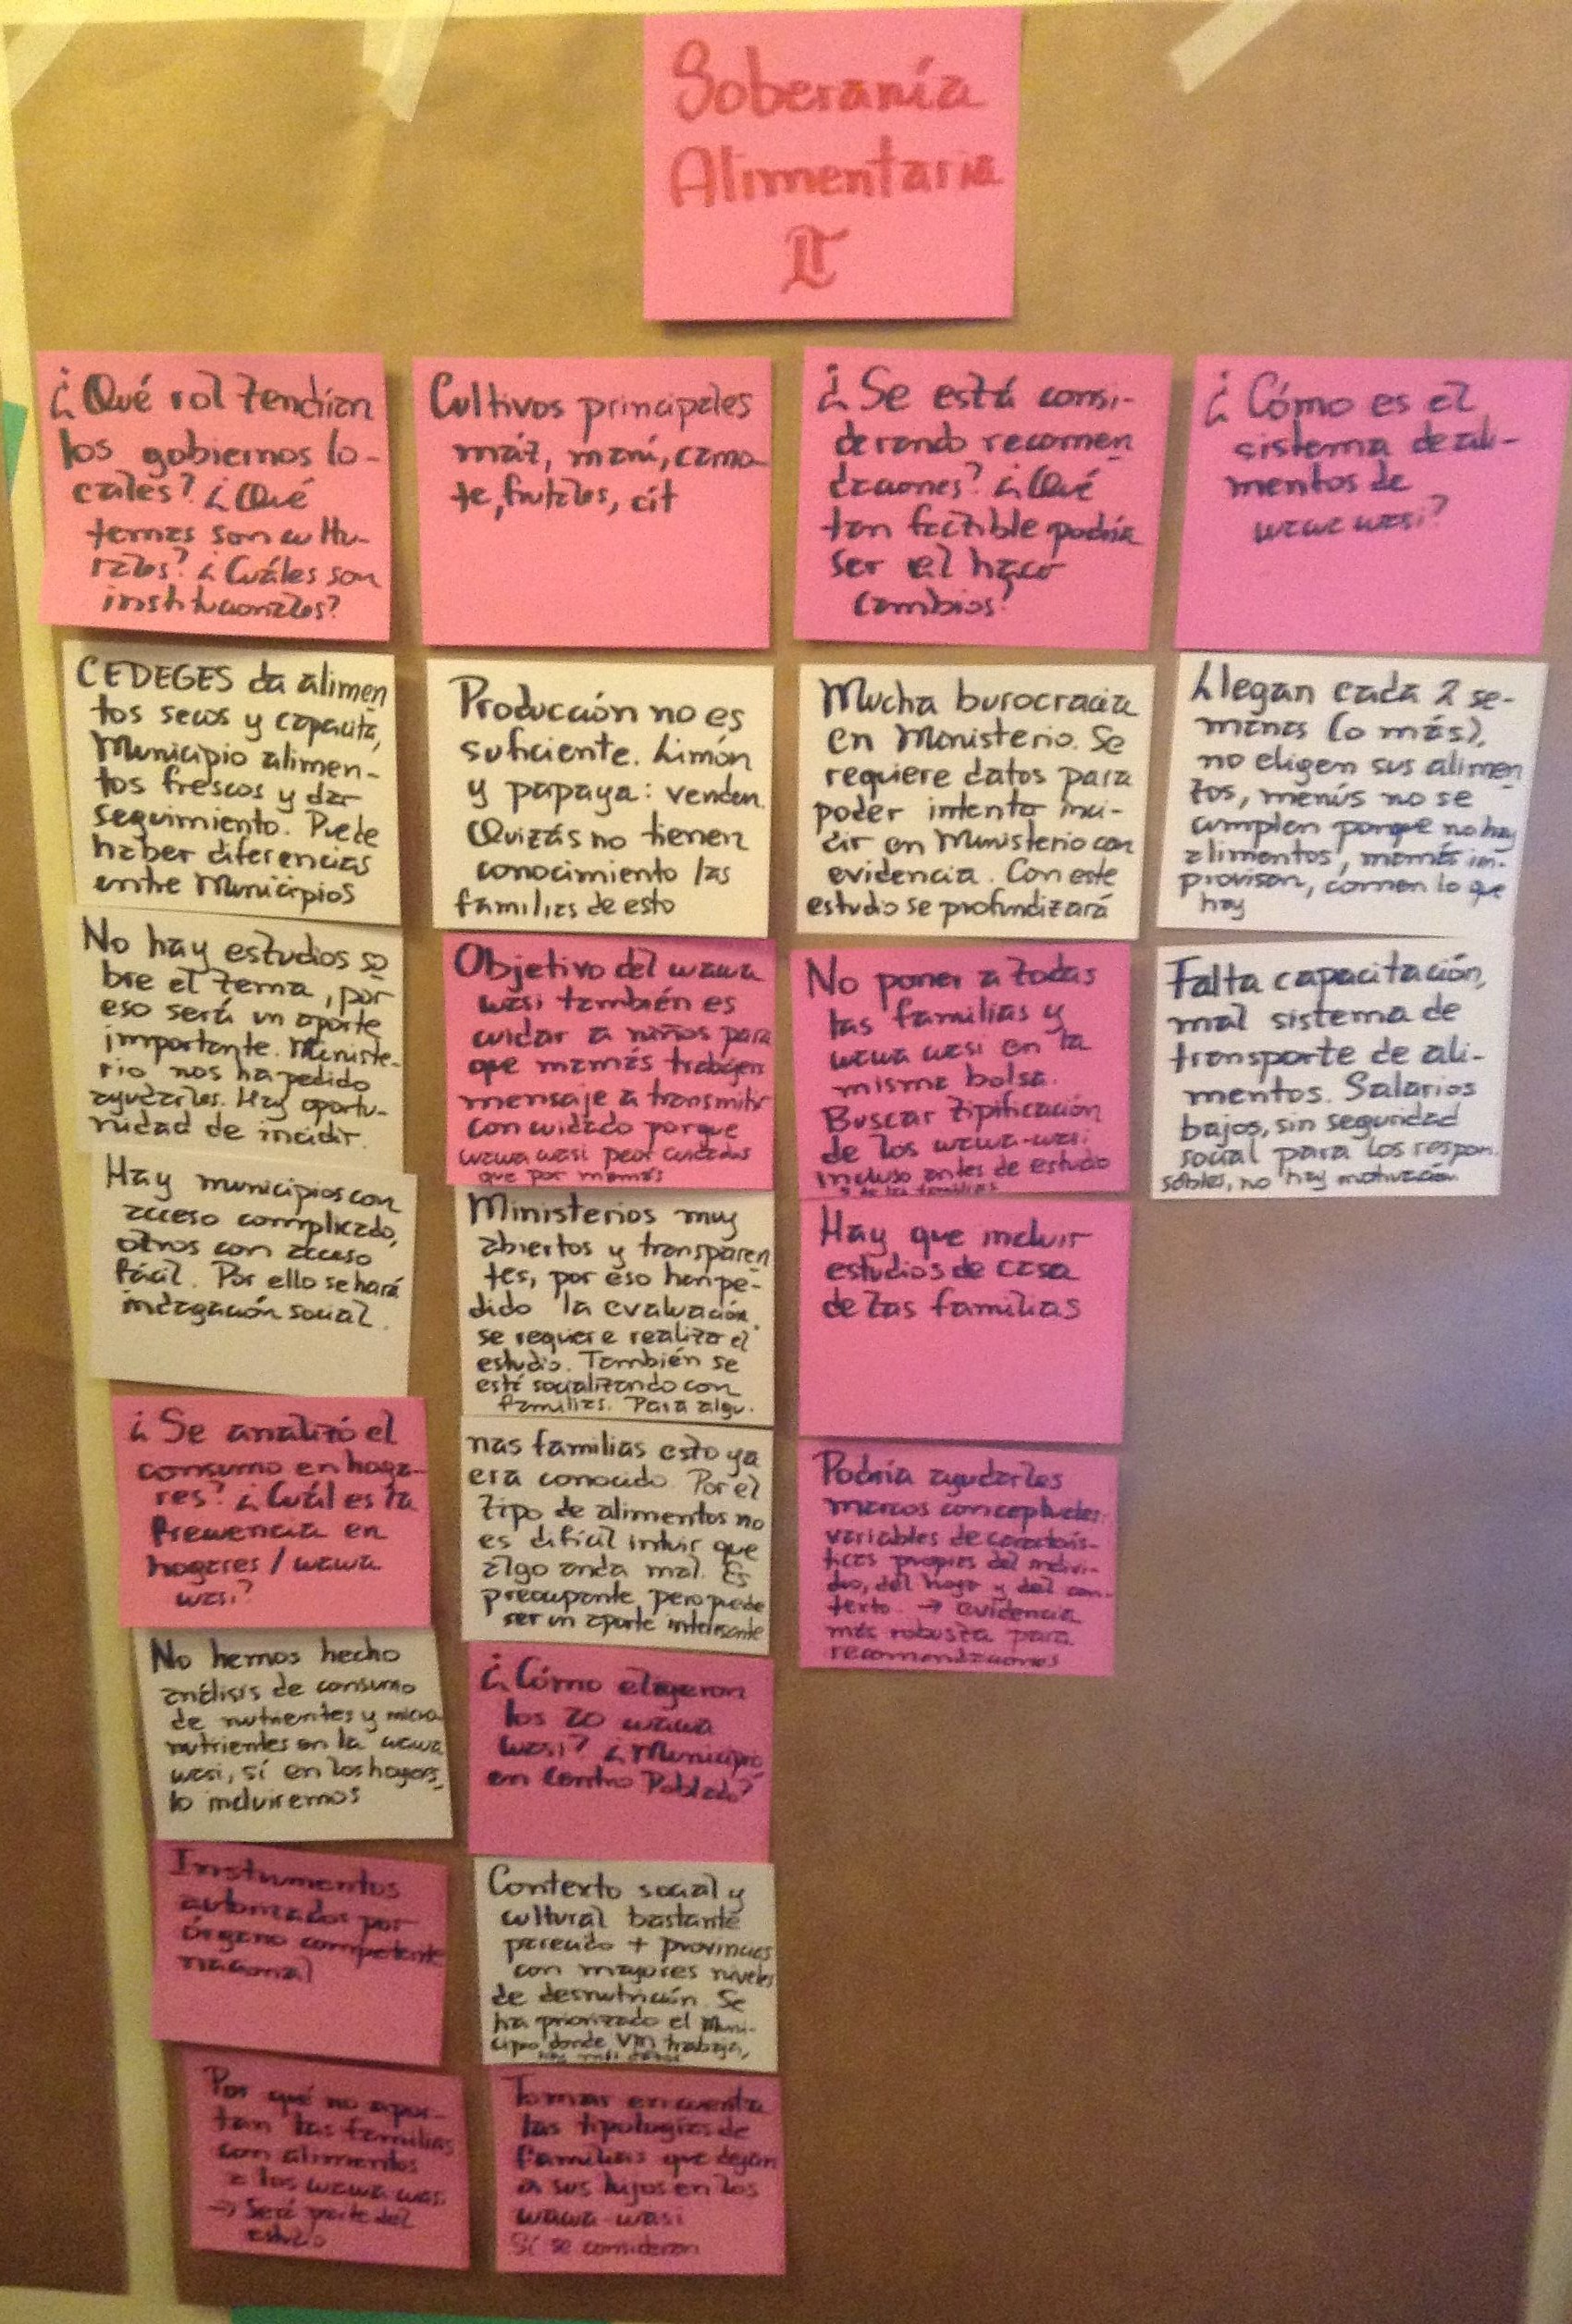 Soberanía
Alimentaria
II
¿Qué rol tendrían
los gobiernos lo-
cales? ¿Qué
temas son cultu-
rales? ¿Cuáles son
institucionales?
CEDEGES da alimen
tos secos y capacita,
Municipio alimen-
tos frescos y dar
seguimiento. Puede
haber diferencias
entre Municipios
No hay estudios so
bre el tema, por
eso será un aporte
importante. Ministe-
rio nos ha pedido
ayudarles. Hay oportu-
nidad de incidir.
Hay municipios con
acceso complicado,
otros con acceso
fácil. Por ello se hará
indagación social.
¿Se analizó el
consumo en hoga-
res? ¿Cuál es la
frecuencia en
hogares / wawa
wasi?
No hemos hecho
análisis de consumo
de nutrientes y micro
nutrientes en la wawa
wasi, sí en los hogares,
lo incluiremos
Instrumentos
autorizados por
órgano competente
nacional
Por qué no apor-
tan las familias
con alimentos
a los wawa wasi
→ Será parte del
estudio
Cultivos principales
maíz, maní, camo
te, frutales, cit
Producción no es
suficiente. Limón
y papaya: venden.
Quizás no tienen
conocimiento las
familias de esto
Objetivo del wawa
wasi también es
cuidar a niños para
que mamás trabajen
mensaje a transmitir
con cuidado porque
wawa wasi peor cuidados
que por mamás
Ministerios muy
abiertos y transparen
tes, por eso han pe-
dido la evaluación.
se requiere realizar el
estudio. También se
está socializando con
familias. Para algu-
nas familias esto ya
era conocido. Por el
tipo de alimentos no
es difícil intuir que
algo anda mal. Es
preocupante, pero puede
ser un aporte interesante
¿Cómo eligieron
los 20 wawa
wasi? ¿Municipio
en Centro Poblado?
Contexto social y
cultural bastante
parecido + provincias
con mayores niveles
de desnutrición. Se
ha priorizado el Muni-
cipio donde VM trabaja,
hay más datos
Tomar en cuenta
las tipologías de
familias que dejan
a sus hijos en los
wawa-wasi
Sí se consideran
¿Se está consi-
derando recomen
daciones? ¿Qué
tan factible podría
ser el hacer
cambios?
Mucha burocracia
en Ministerio. Se
requiere datos para
poder intentar inci-
dir en Ministerio con
evidencia. Con este
estudio se profundizará
No poner a todas
las familias y
wawa wasi en la
misma bolsa.
Buscar tipificación
de los wawa-wasi
incluso antes de estudio
y de las familias
Hay que incluir
estudios de casa
de las familias
Podría ayudarles
marcos conceptuales:
variables de caracterís-
ticas propias del indivi-
duo, del hogar y del con-
texto. → evidencia
más robusta para
recomendaciones
¿Cómo es el
sistema de ali-
mentos de
wawa wasi?
Llegan cada 2 se-
manas (o más),
no eligen sus alimen
tos, menús no se
cumplen porque no hay
alimentos, mamás im-
provisan, comen lo que
hay
Falta capacitación,
mal sistema de
transporte de ali-
mentos. Salarios
bajos, sin seguridad
social para los respon-
sables, no hay motivación